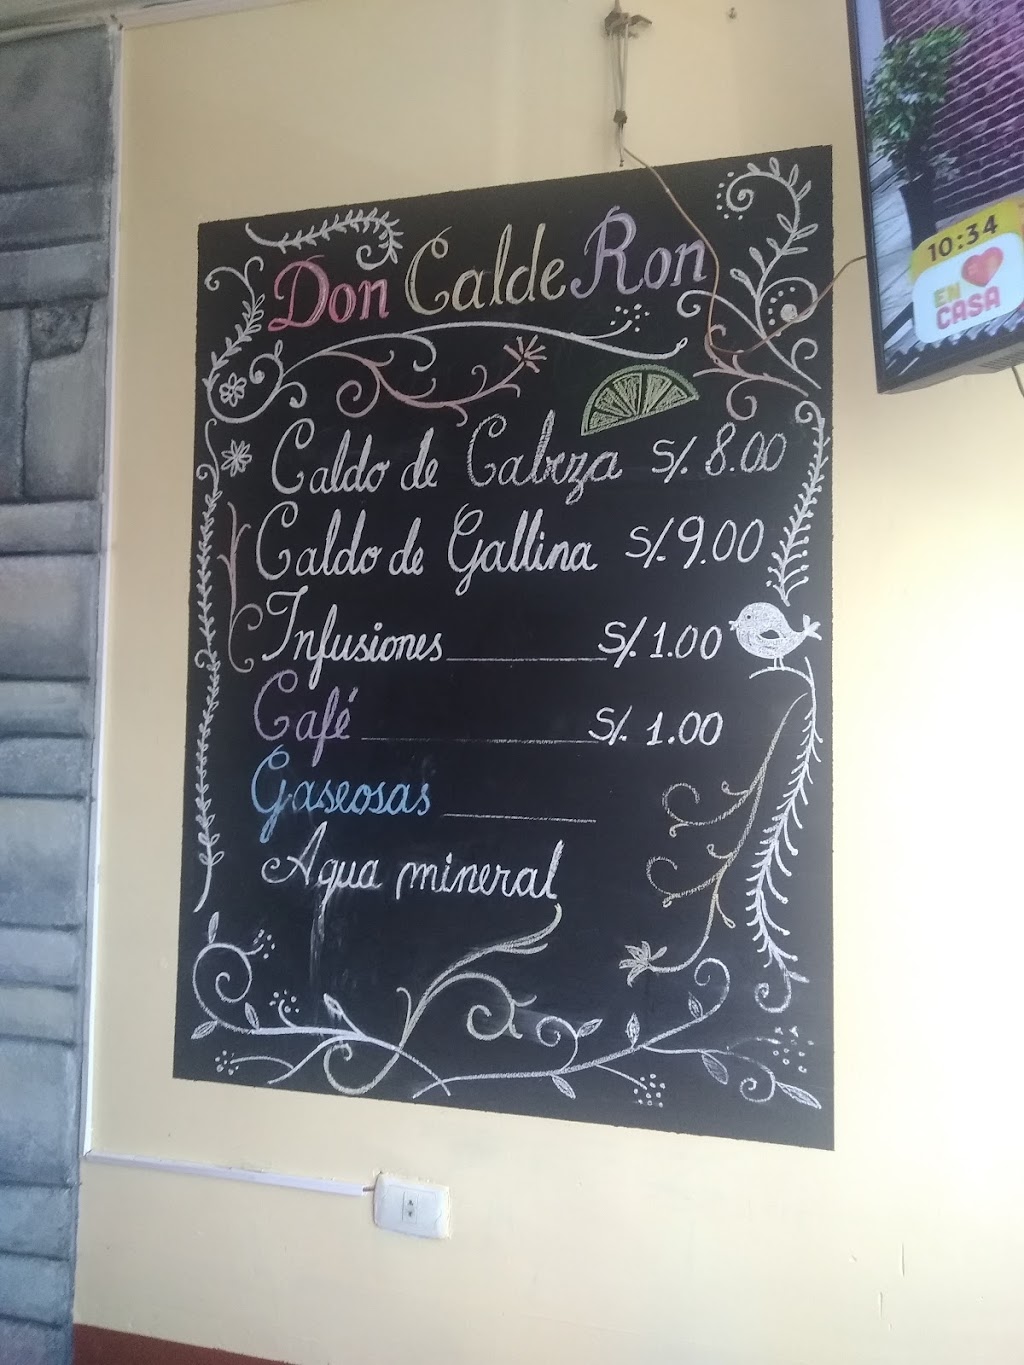 Don CaldeRon
Caldo de Cabeza S/. 8.00
Caldo de Gallina S/. 9.00
Infusiones S/. 1.00
Café S/. 1.00
Gaseosas
Agua mineral
10:34
EN
CASA